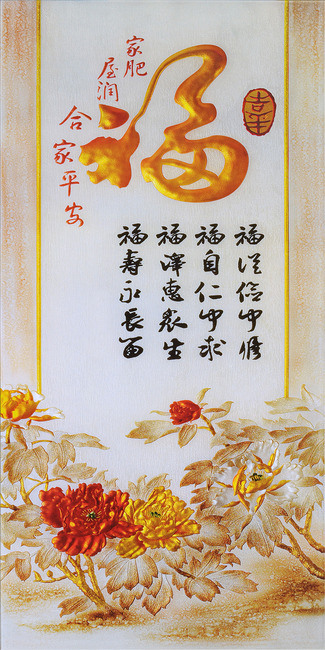 福
家肥
屋润
合家平安
福从俭中修
福自仁中求
福泽惠众生
福寿永长留